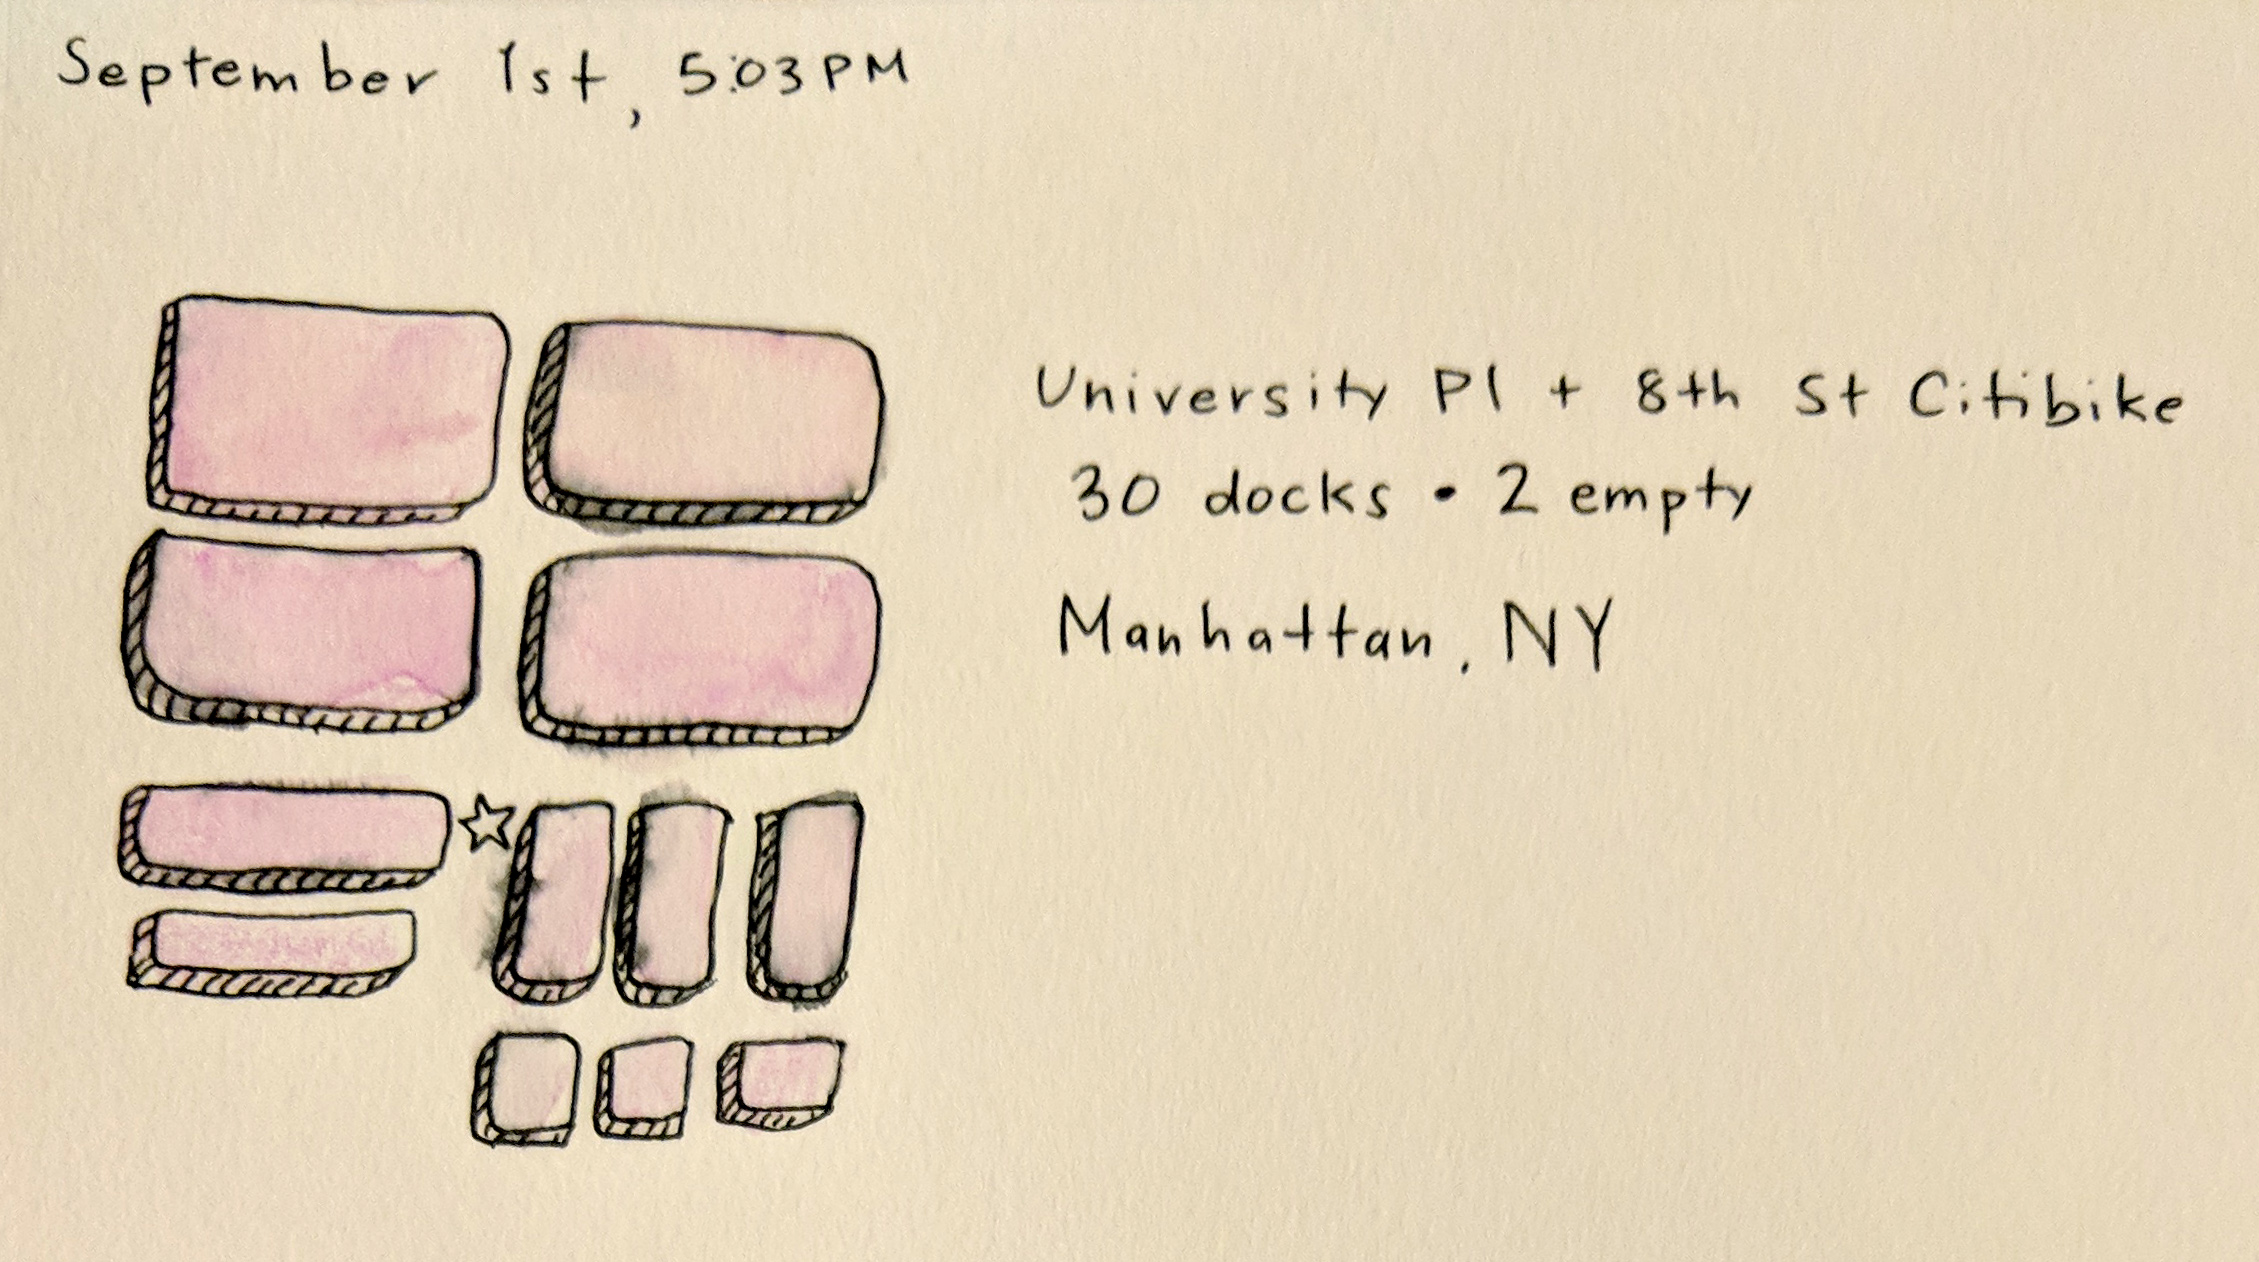 September 1st, 5:03PM
University Pl + 8th St Citibike
30 docks • 2 empty
Manhattan, NY